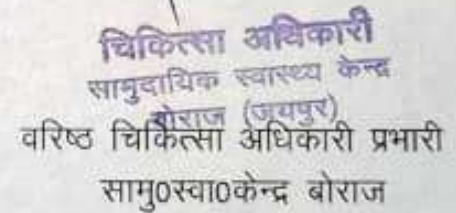 चिकित्सा अधिकारी
सामुदायिक स्वास्थ्य केन्द्र
बोराज (जयपुर)
वरिष्ठ चिकित्सा अधिकारी प्रभारी
सामु0स्वा0केन्द्र बोराज